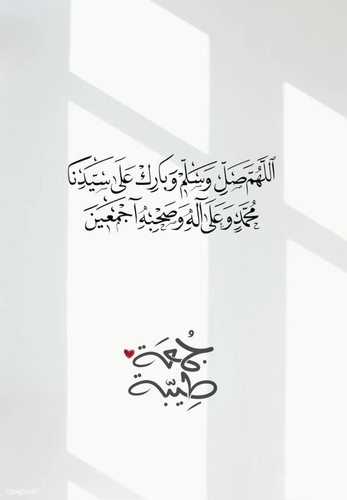 اللَّهُمَّ صَلِّ وَسَلِّمْ وَبَارِكْ عَلَى سَيِّدِنَا
مُحَمَّدٍ وَعَلَى آلِهِ وَصَحْبِهِ أَجْمَعِينَ
جُمعَة
طيّبة
rawpixel